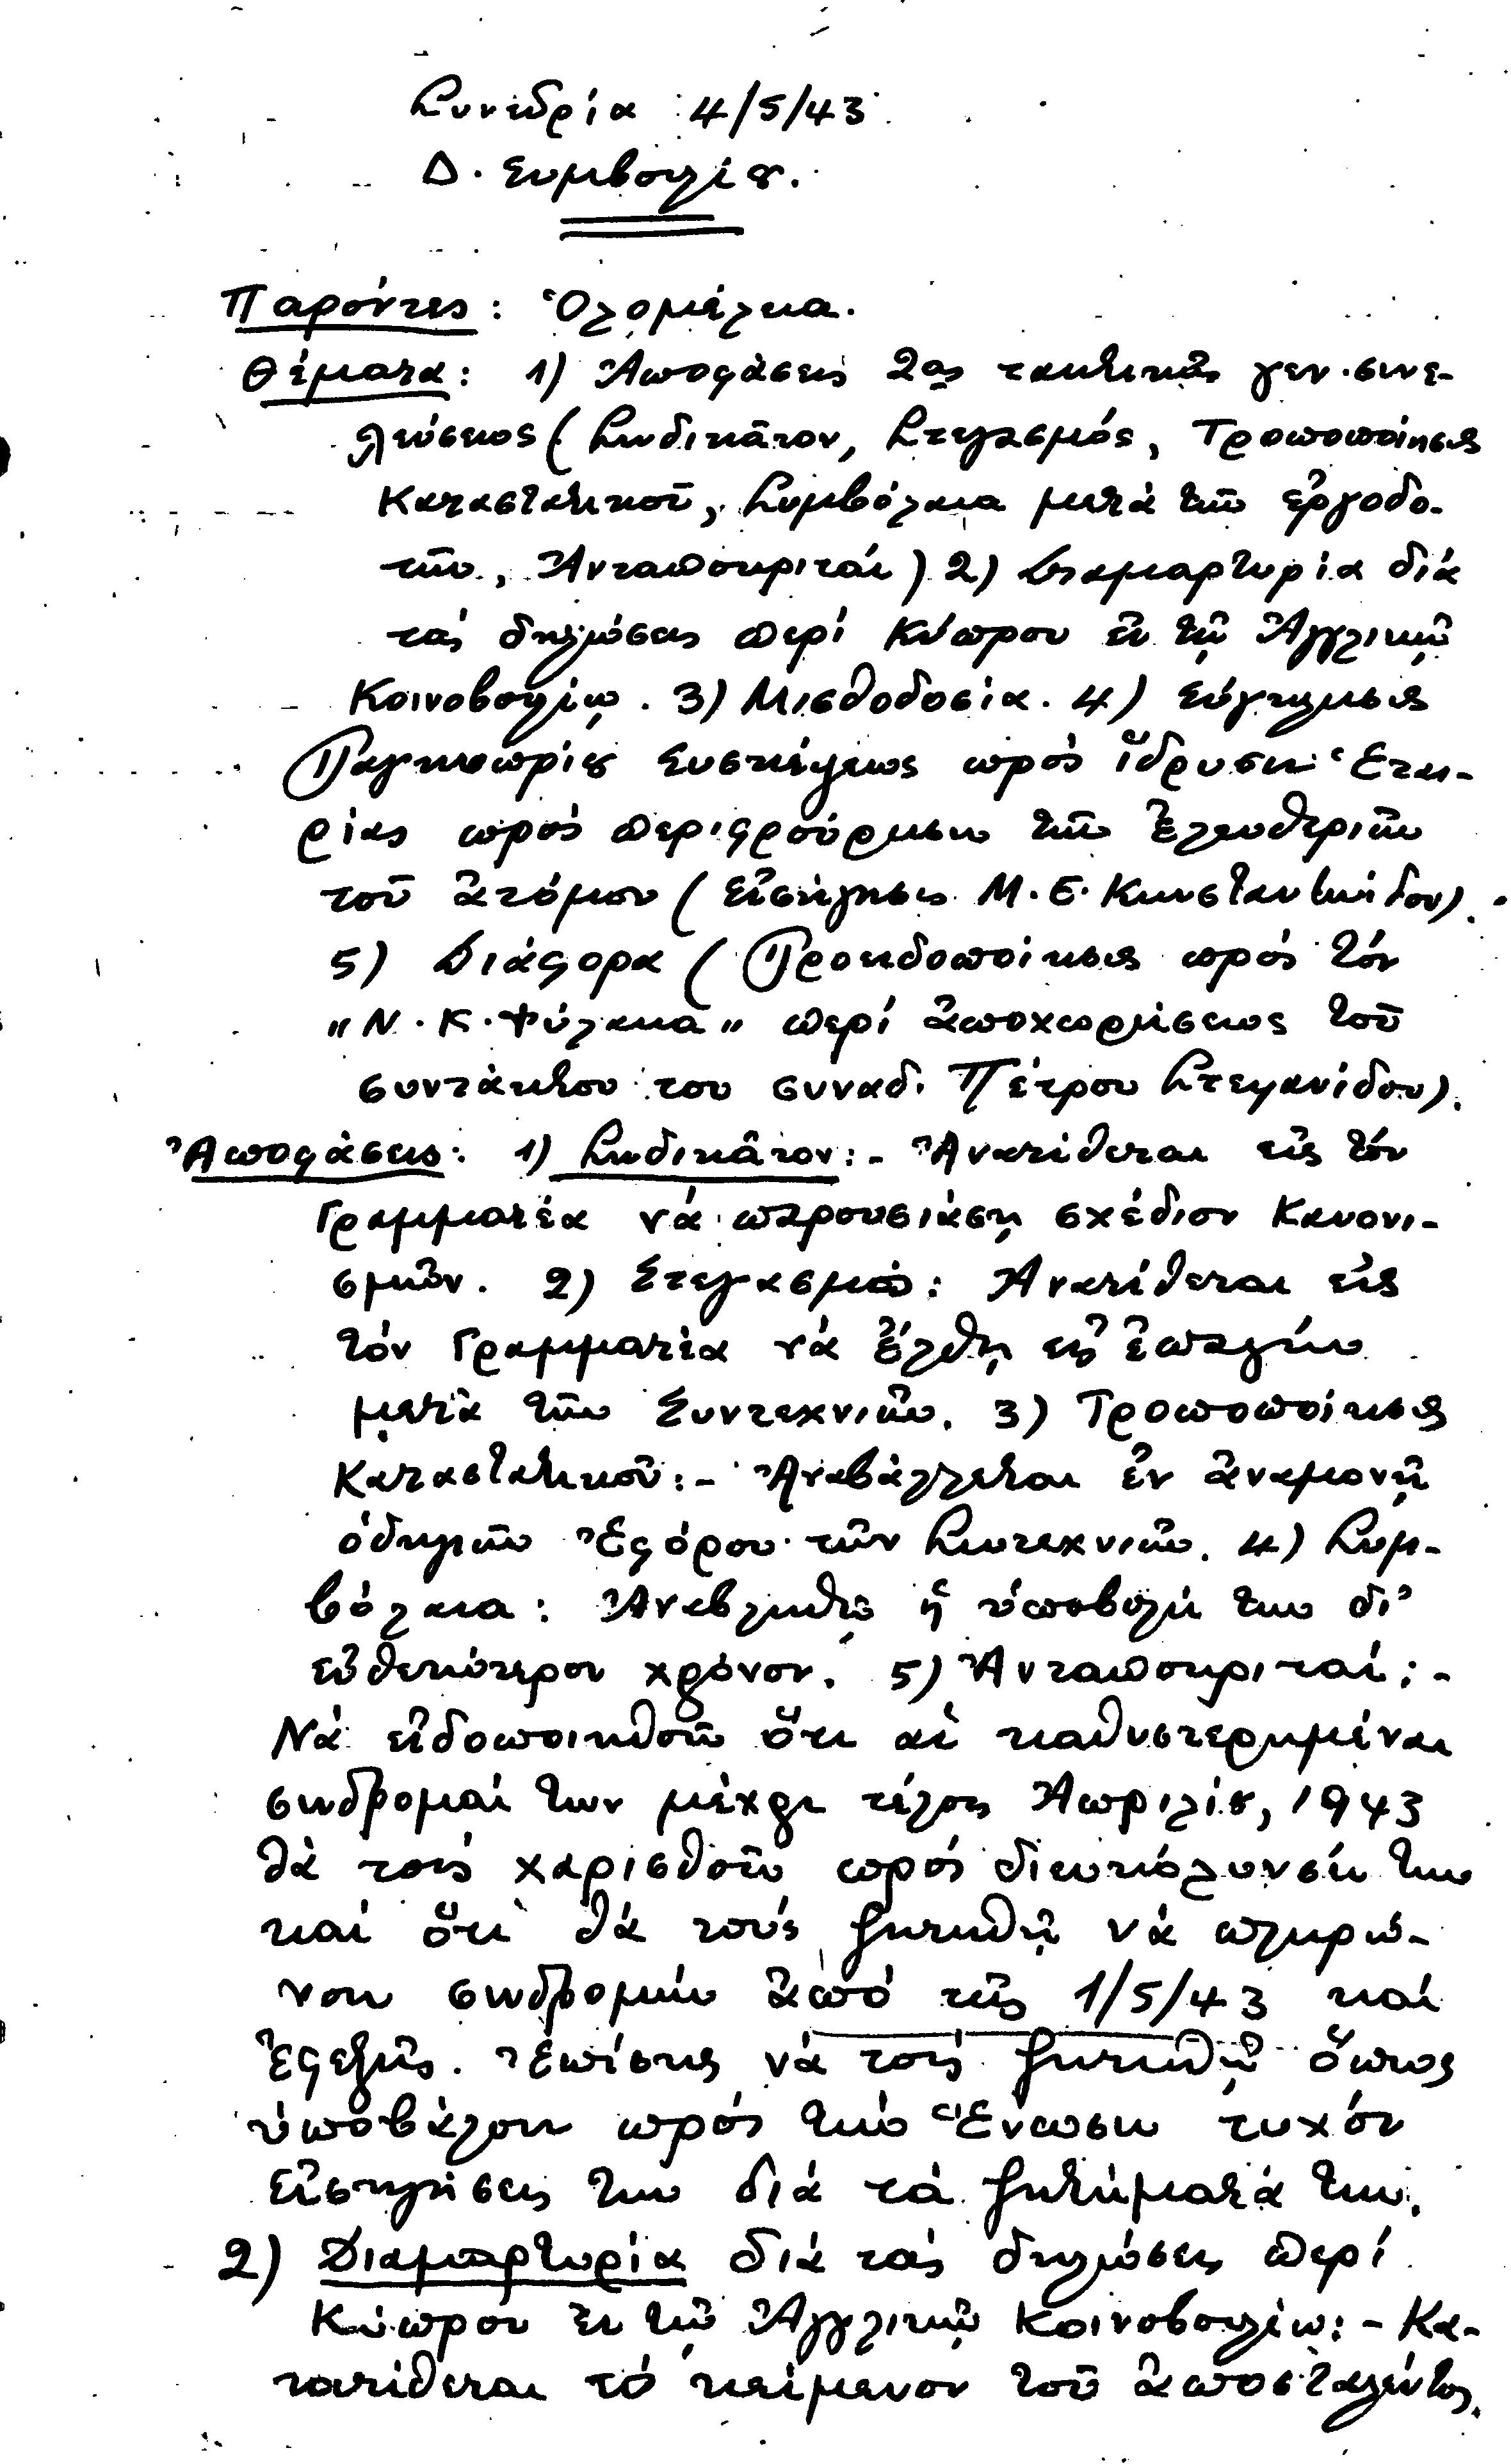 Συνεδρία 4/5/43
Δ. Συμβουλίου.
Παρόντες: Ὁλομέλεια.
Θέματα: 1) Ἀποφάσεις 2ας τακτικῆς γεν. συνε-
λεύσεως (Συνδικᾶτον, Στεγασμός, Τροποποίησις
Καταστατικοῦ, Συμβόλαια μετά τῶν ἐργοδο-
τῶν, Ἀνταποκριταί) 2) Διαμαρτυρία διά
τάς δηλώσεις περί Κύπρου ἐν τῷ Ἀγγλικῷ
Κοινοβουλίῳ. 3) Μισθοδοσία. 4) Σύγκλησις
Παγκυπρίου Συσκέψεως πρός ἵδρυσιν Ἑται-
ρίας πρός περιφρούρησιν τῶν Ἐλευθεριῶν
τοῦ ἀτόμου (Εἰσήγησις Μ. Ε. Κωνσταντινίδου).
5) Διάφορα (Προειδοποίησις πρός τόν
"Ν. Κ. Φύλακα" περί ἀποχωρήσεως τοῦ
συντάκτου του συναδ. Πέτρου Στεφανίδου).
Ἀποφάσεις: 1) Συνδικᾶτον:- Ἀνατίθεται εἰς τόν
Γραμματέα νά παρουσιάσῃ σχέδιον Κανονι-
σμῶν. 2) Στεγασμός: Ἀνατίθεται εἰς
τόν Γραμματέα νά ἔλθῃ εἰς ἐπαφήν
μετά τῶν Συντεχνιῶν. 3) Τροποποίησις
Καταστατικοῦ:- Ἀναβάλλεται ἐν ἀναμονῇ
ὁδηγιῶν Ἐφόρου τῶν Συντεχνιῶν. 4) Συμ-
βόλαια: Ἀνεβλήθη ἡ ὑποβολή των δι'
εὐθετώτερον χρόνον. 5) Ἀνταποκριταί:-
Νά εἰδοποιηθοῦν ὅτι αἱ καθυστερημέναι
συνδρομαί των μέχρι τέλος Ἀπριλίου, 1943
θά τοῖς χαρισθοῦν πρός διευκόλυνσίν των
καί ὅτι θά τούς ζητηθῇ νά πληρώ-
νουν συνδρομήν ἀπό τῆς 1/5/43 καί
ἐφεξῆς. Ἐπίσης νά τοῖς ζητηθῇ ὅπως
ὑποβάλουν πρός τήν Ἕνωσιν τυχόν
εἰσηγήσεις των διά τά ζητήματά των.
2) Διαμαρτυρία διά τάς δηλώσεις περί
Κύπρου ἐν τῷ Ἀγγλικῷ Κοινοβουλίῳ:- Κα-
τατίθεται τό κείμενον τοῦ ἀποσταλέντος